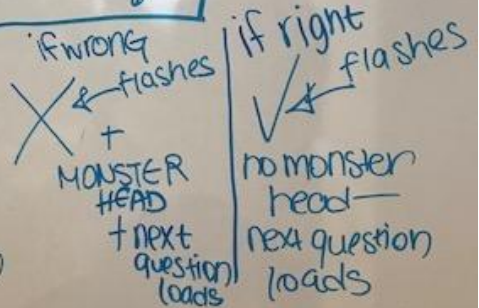 if wrong
X flashes
+
MONSTER
HEAD
+ next
question
loads
if right
✓ flashes
no monster
head—
next question
loads